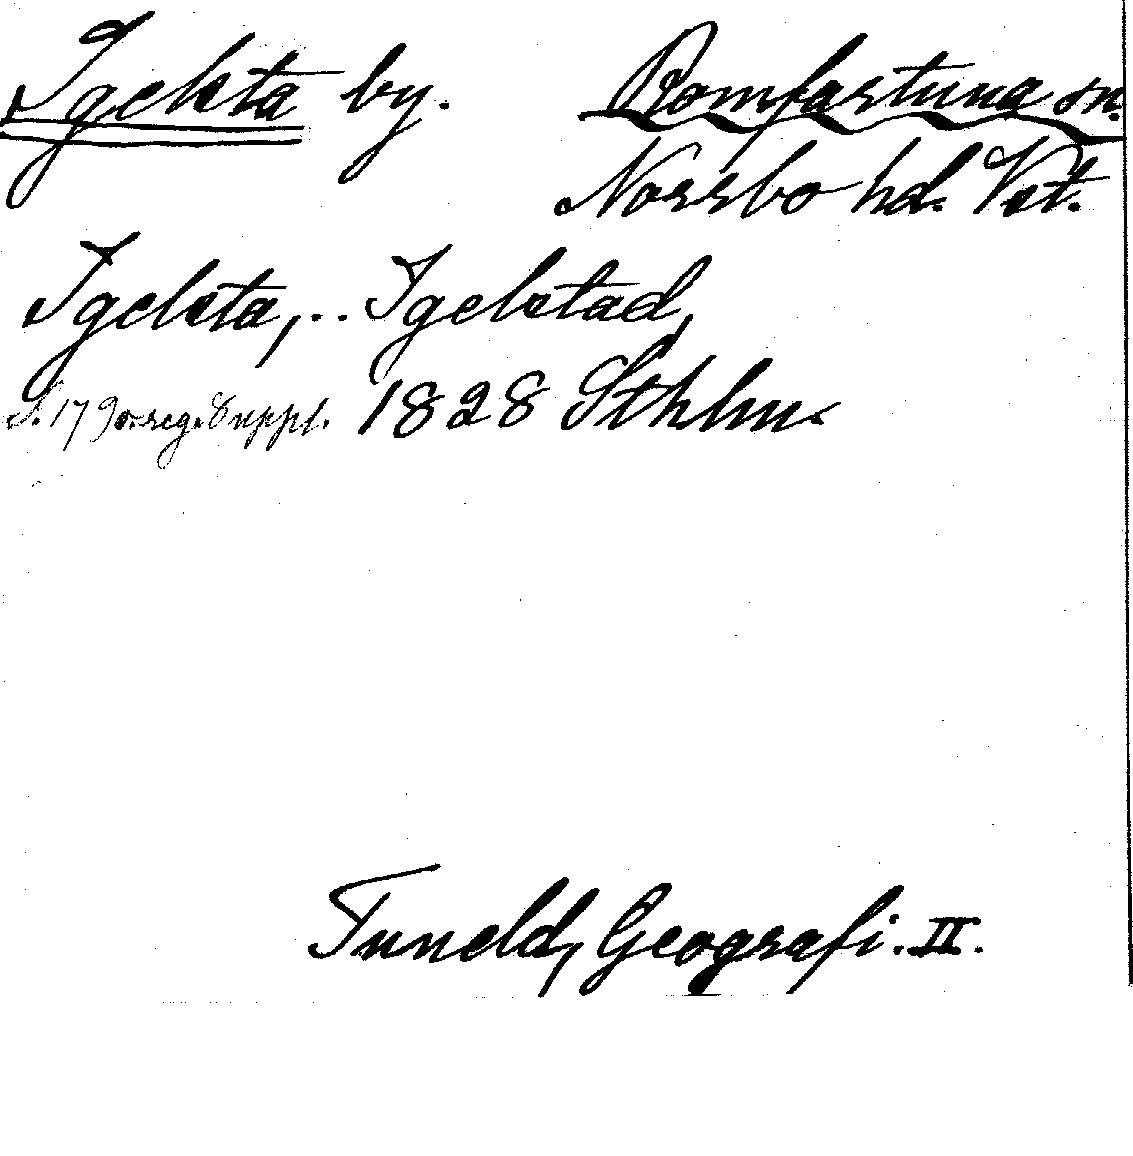 Igelsta by. Romfartuna sn.
Norrbo hd. Vst.
Igelsta, .. Igelstad,
S. 179 o. reg. Suppl. 1828 Sthlm.
Tuneld, Geografi. II.